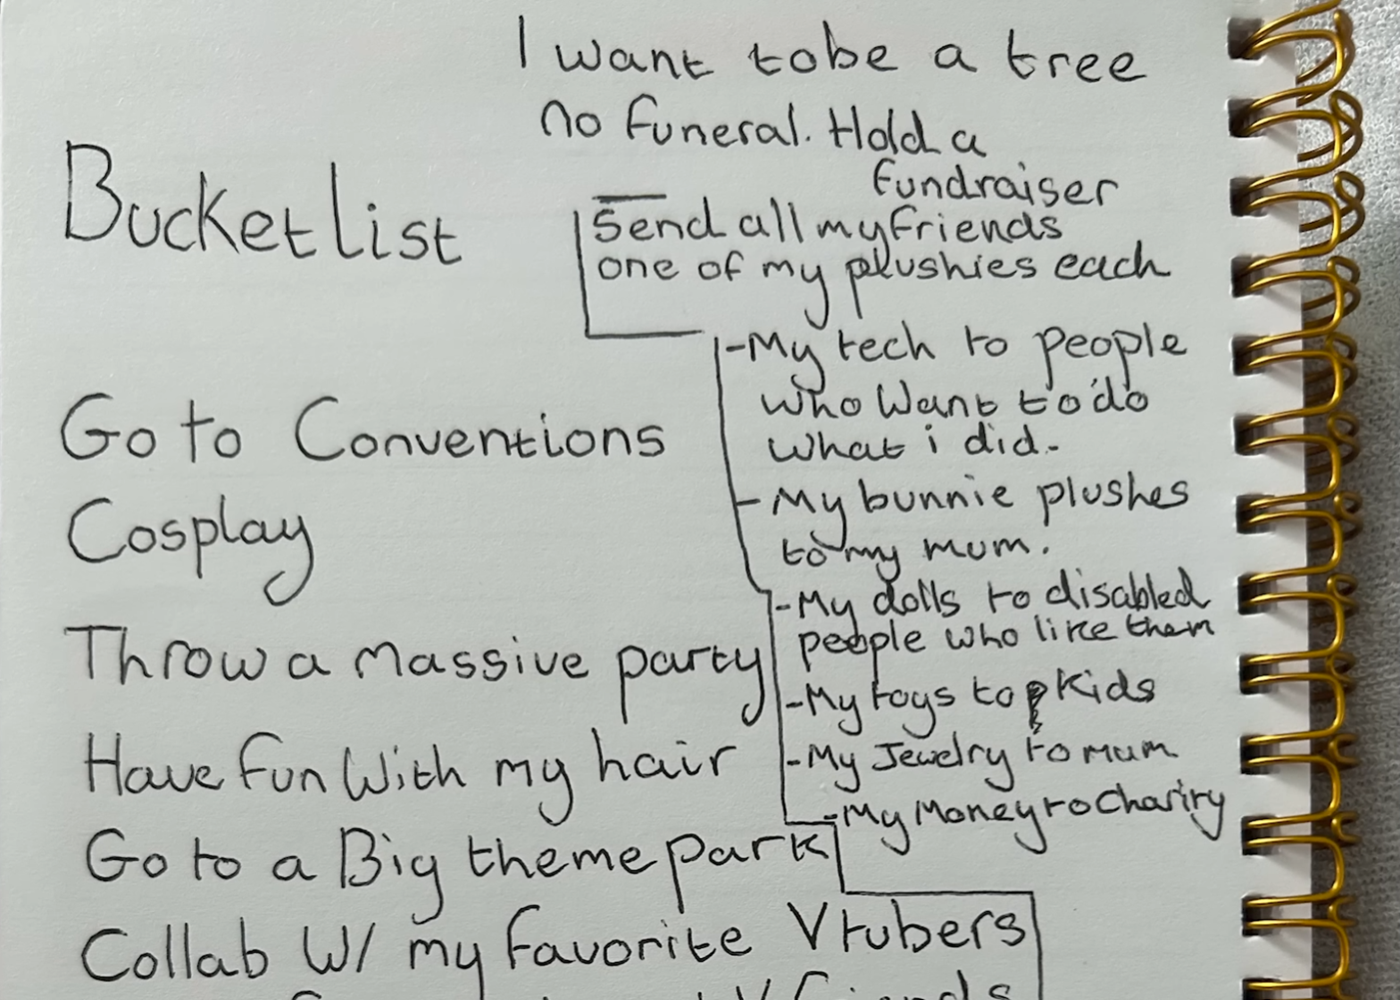 I want tobe a tree
no funeral. Hold a
fundraiser
Send all my friends
one of my plushies each
- My tech to people
who want to do
what i did.
- My bunnie plushes
to my mum.
- My dolls to disabled
people who like them
- My toys to kids
- My Jewelry to mum
- My Money to Charity
Bucket list
Go to Conventions
Cosplay
Throw a massive party
Have fun With my hair
Go to a Big theme park
Collab W/ my favorite Vtubers